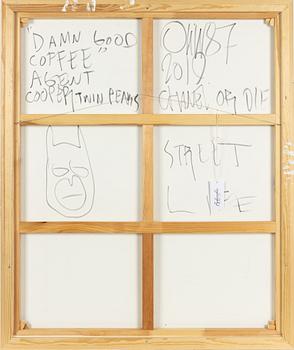 "DAMN GOOD
COFFEE"
AGENT
COOPER, TWIN PEAKS
2019
CHANGE OR DIE
STREET
LIFE